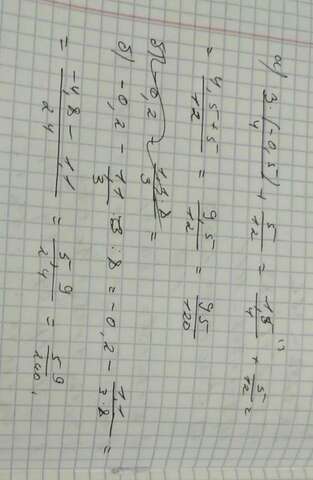 а) 3·(-0,5)/4 + 5/12 = 1,5/4 + 5/12 =
= 4,5+5/12 = 9,5/12 = 95/120
б) -0,2 - 1,1/3 : 8 = -0,2 - 1,1/3·8 =
= -4,8-1,1/24 = 5,9/24 = 59/240